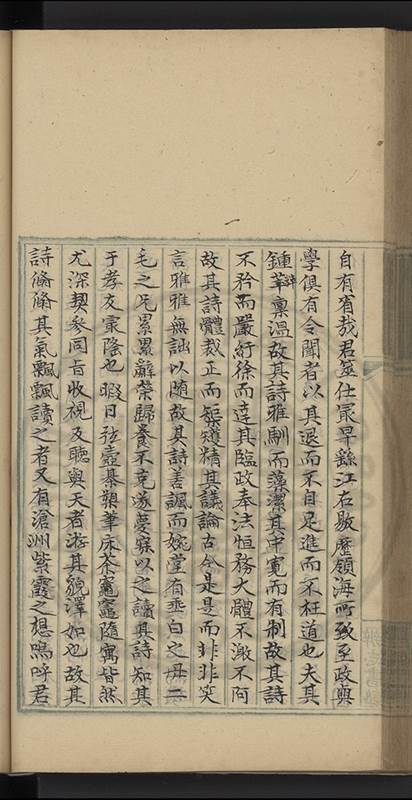 自有省哉君筮仕最早繇江右敭歷嶺海所致至政與
學俱有令聞者以其退而不自足進而不枉道也夫其
鍾粹稟溫故其詩雅馴而藻潔其中寬而有制故其詩
不矜而嚴紆徐而達其臨政奉法恒務大體不激不阿
故其詩體裁正而榘矱精其議論古今是是而非非笑
言雅雅無詘以隨故其詩善諷而婉堂有垂白之母二
毛之兄累累辭榮歸養不克遂夢寐以之讀其詩知其
于孝友最隆也暇日弦壺棊槊筆床茶竈隨寓皆然
尤深契參同旨收視及聽與天者游其貌澤如也故其
詩翛翛其氣飄飄讀之者又有滄州紫霞之想嗚呼君